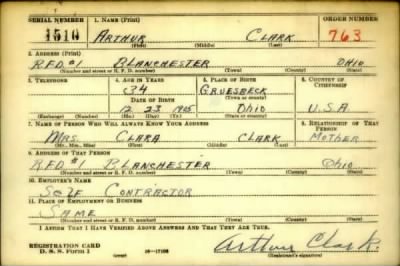 SERIAL NUMBER 1. NAME (Print) ORDER NUMBER
1510 ARTHUR CLARK 763
(First) (Middle) (Last)
2. ADDRESS (Print)
R.F.D. #1 BLANCHESTER OHIO
(Number and street or R. F. D. number) (Town) (County) (State)
3. TELEPHONE 4. AGE IN YEARS 5. PLACE OF BIRTH 6. COUNTRY OF CITIZENSHIP
34 GRUESBECK
DATE OF BIRTH (Town or county)
12 23 1905 OHIO U.S.A
(Exchange) (Number) (Mo.) (Day) (Yr.) (State or country)
7. NAME OF PERSON WHO WILL ALWAYS KNOW YOUR ADDRESS 8. RELATIONSHIP OF THAT PERSON
MRS. CLARA CLARK MOTHER
(Mr., Mrs., Miss) (First) (Middle) (Last)
9. ADDRESS OF THAT PERSON
R.F.D. #1 BLANCHESTER OHIO
(Number and street or R. F. D. number) (Town) (County) (State)
10. EMPLOYER'S NAME
SELF CONTRACTOR
11. PLACE OF EMPLOYMENT OR BUSINESS
SAME
(Number and street or R. F. D. number) (Town) (County) (State)
I AFFIRM THAT I HAVE VERIFIED ABOVE ANSWERS AND THAT THEY ARE TRUE.
REGISTRATION CARD
D. S. S. Form 1 (over) 16-17105 Arthur Clark.
(Registrant's signature)